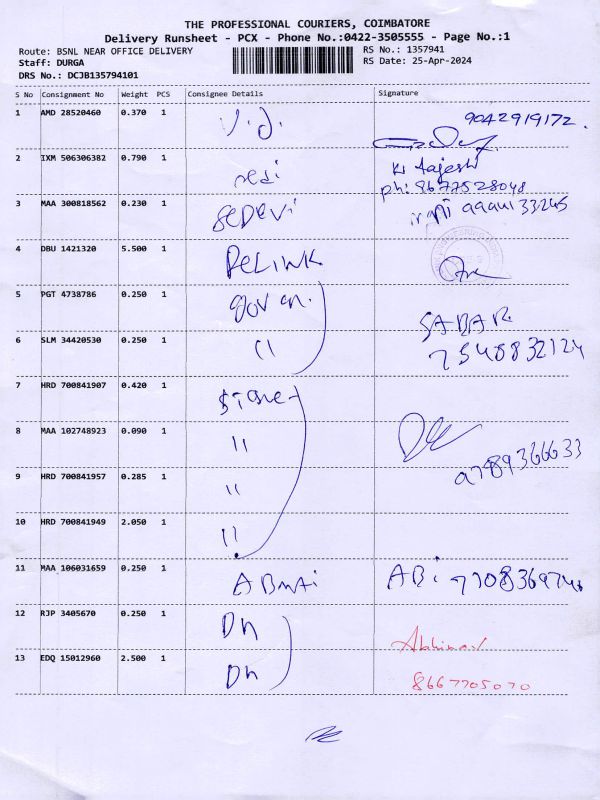 THE PROFESSIONAL COURIERS, COIMBATORE
Delivery Runsheet - PCX - Phone No.:0422-3505555 - Page No.:1
Route: BSNL NEAR OFFICE DELIVERY
RS No.: 1357941
Staff: DURGA
RS Date: 25-Apr-2024
DRS No.: DCJB135794101
S No Consignment No Weight PCS Consignee Details Signature
1 AMD 28520460 0.370 1 9042919172
2 IXM 506306382 0.790 1
ph: 9677528048
3 MAA 300818562 0.230 1
4 DBU 1421320 5.500 1 DELINK
5 PGT 4738786 0.250 1
SABAR
6 SLM 34420530 0.250 1 "
7 HRD 700841907 0.420 1
8 MAA 102748923 0.090 1 "
9789366633
9 HRD 700841957 0.285 1 "
10 HRD 700841949 2.050 1 "
11 MAA 106031659 0.250 1 ABi
12 RJP 3405670 0.250 1 Dn
Abhinav
13 EDQ 15012960 2.500 1 Dn 8667705070